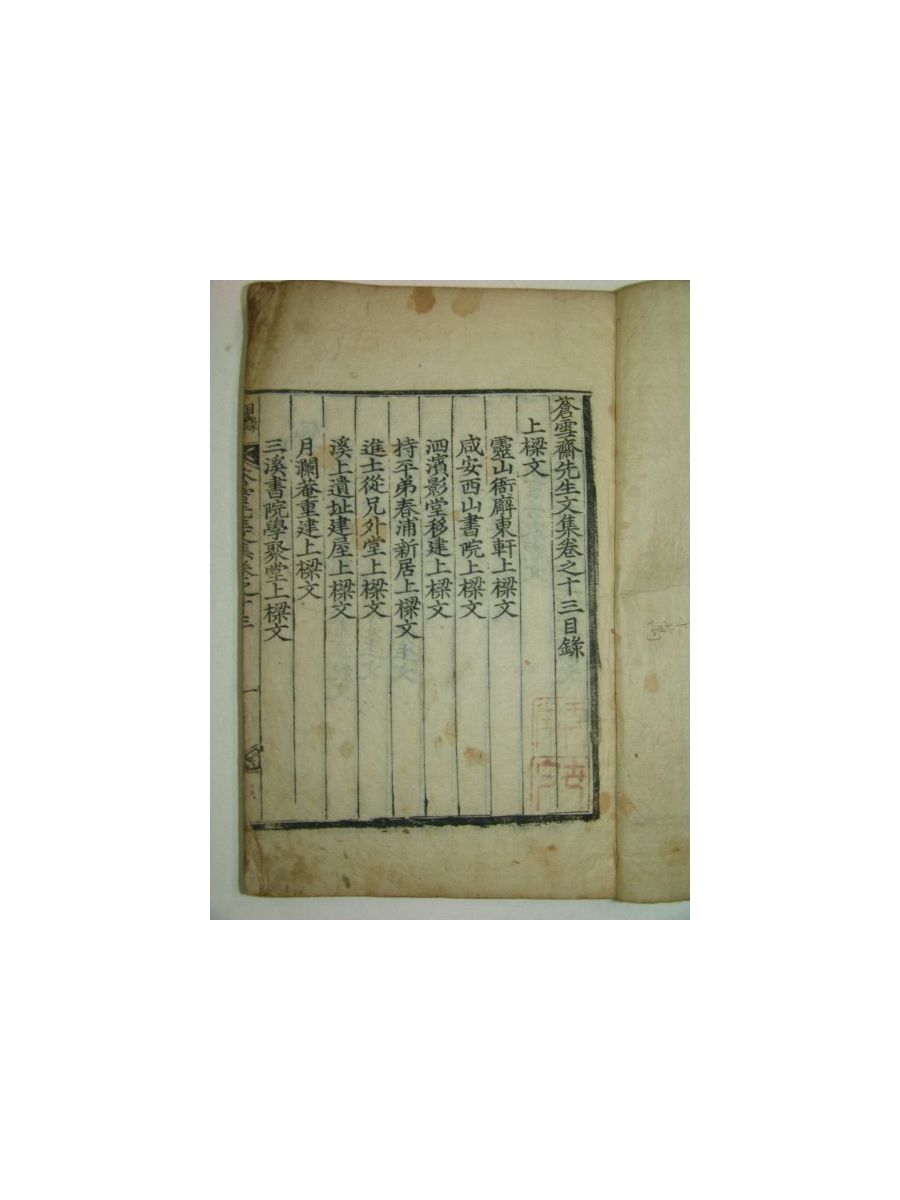 蒼雪齋先生文集卷之十三目錄
上樑文
靈山衙廨東軒上樑文
咸安西山書院上樑文
泗濱影堂移建上樑文
持平弟春浦新居上樑文
進士從兄外堂上樑文
溪上遺址建屋上樑文
月瀾菴重建上樑文
三溪書院學聚堂上樑文
目錄
集卷之十三
一